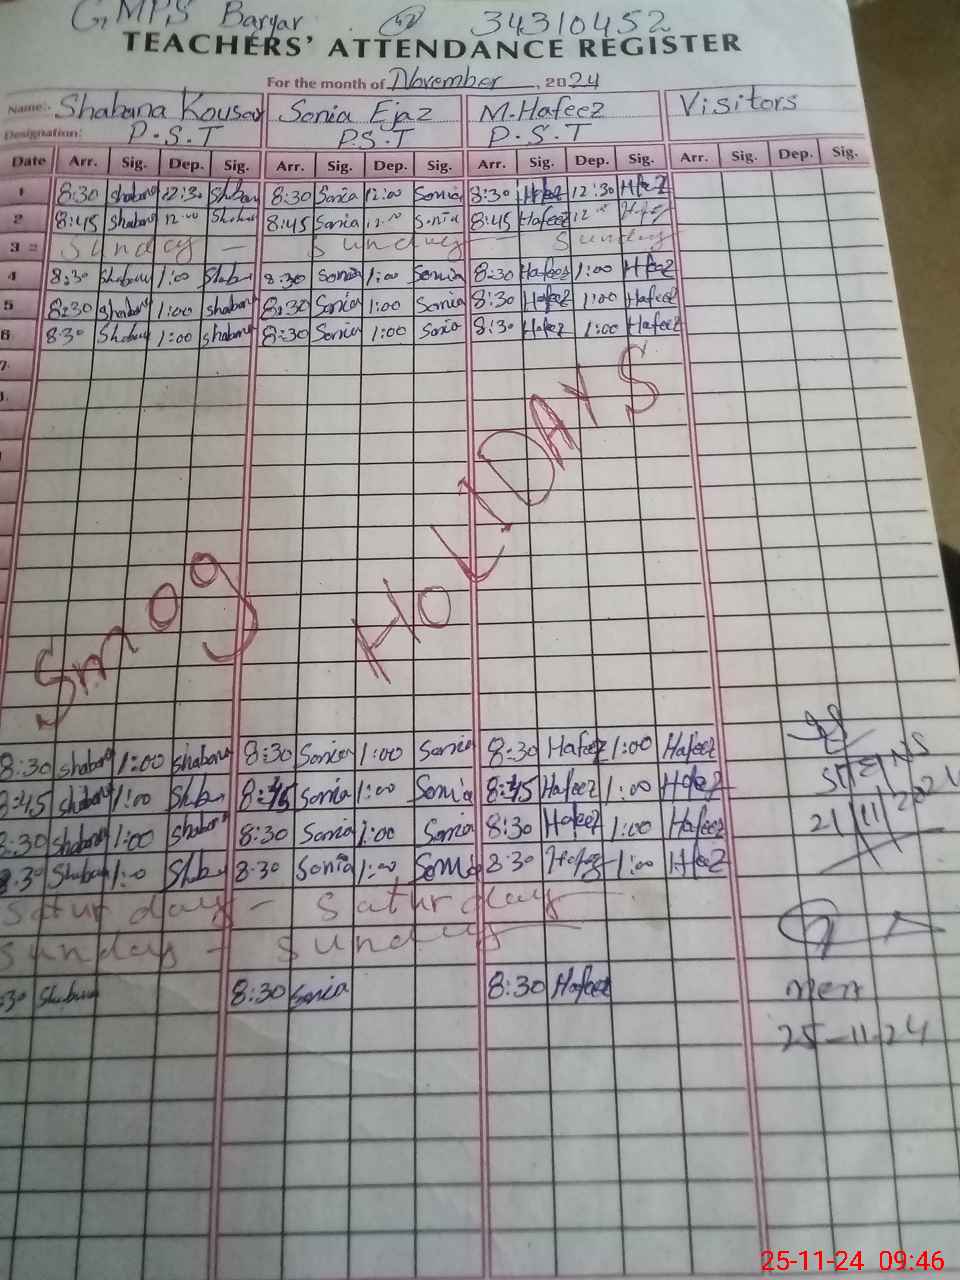 GMPS Baryar 34310452
TEACHERS' ATTENDANCE REGISTER
For the month of November, 2024
Name:- Shabana Kousar Sonia Ejaz M.Hafeez Visitors
Designation: P.S.T P.S.T P.S.T
Date Arr. Sig. Dep. Sig. Arr. Sig. Dep. Sig. Arr. Sig. Dep. Sig. Arr. Sig. Dep. Sig.
1 8:30 Shabana 12:30 Shaban 8:30 Sonia 12:00 Sonia 8:30 Hafeez 12:30 Hfez
2 8:45 Shabana 12:00 Shaban 8:45 Sonia 12:00 Sonia 8:45 Hafeez 12:00
3 = Sunday - Sunday - Sunday
4 8:30 Shabana 1:00 Shaban 8:30 Sonia 1:00 Sonia 8:30 Hafeez 1:00 Hfeez
5 8:30 Shabana 1:00 Shabana 8:30 Sonia 1:00 Sonia 8:30 Hafeez 1:00 Hafeez
6 8:30 Shabana 1:00 Shabana 8:30 Sonia 1:00 Sonia 8:30 Hafeez 1:00 Hafeez
7
Smog HOLIDAYS
8:30 Shabana 1:00 Shabana 8:30 Sonia 1:00 Sonia 8:30 Hafeez 1:00 Hafeez
8:45 Shabana 1:00 Shaban 8:45 Sonia 1:00 Sonia 8:45 Hafeez 1:00 Hafeez
8:30 Shabana 1:00 Shabana 8:30 Sonia 1:00 Sonia 8:30 Hafeez 1:00 Hafeez
21/11/2024
8:30 Shaban 1:00 Shaban 8:30 Sonia 1:00 Sonia 8:30 Hafeez 1:00 Hfeez
Saturday - Saturday
Sunday - Sunday
:30 Shabana 8:30 Sonia 8:30 Hafeez
25-11-24
25-11-24 09:46